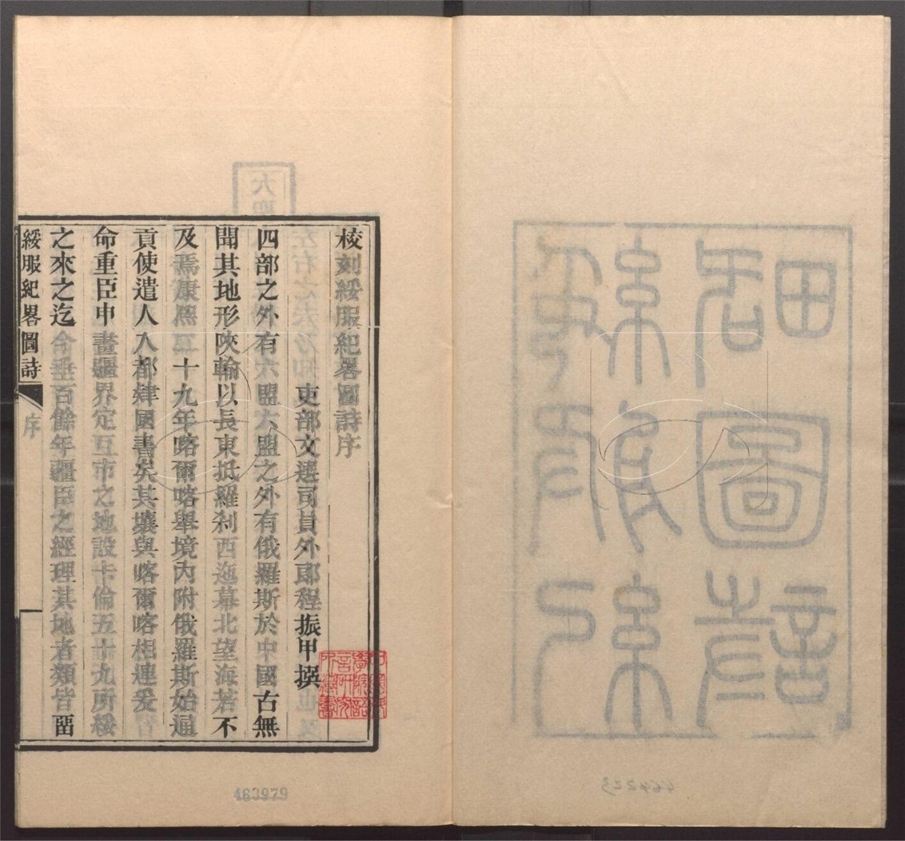 校刻綏服紀畧圖詩序
吏部文選司員外郎程振甲撰
四部之外有六盟六盟之外有俄羅斯於中國古無
聞其地形陿輪以長東抵羅刹西迤幕北望海若不
及焉康熈二十九年喀爾喀舉境內附俄羅斯始通
貢使遣人入都肄國書矣其壤與喀爾喀相連爰
命重臣申畫疆界定互市之地設卡倫五十九所綏
之來之迄今垂百餘年疆臣之經理其地者類皆畱
綏服紀畧圖詩
序
463979
464223